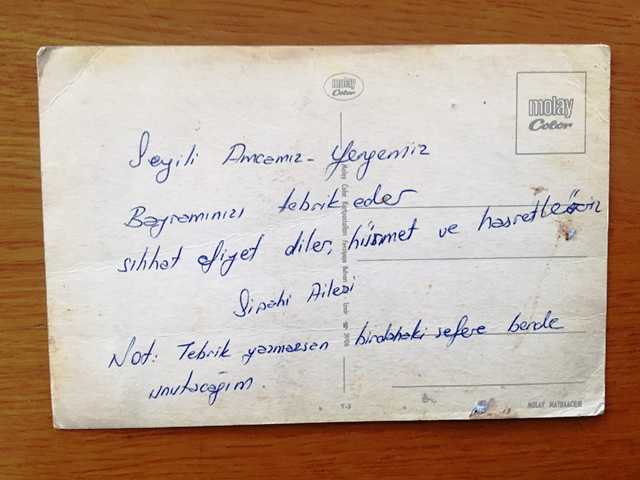 molay
Color
molay
Color
Sevgili Amcamız - Yengemiz
Bayramınızı tebrik eder
sıhhat afiyet diler, hürmet ve hasretle
Sipahi Ailesi
Not: Tebrik yazmazsan birdahaki sefere bende
unutacağım.
Molay Color Kartpostalları
İzmir
Y-3
MOLAY MATBAACILIK